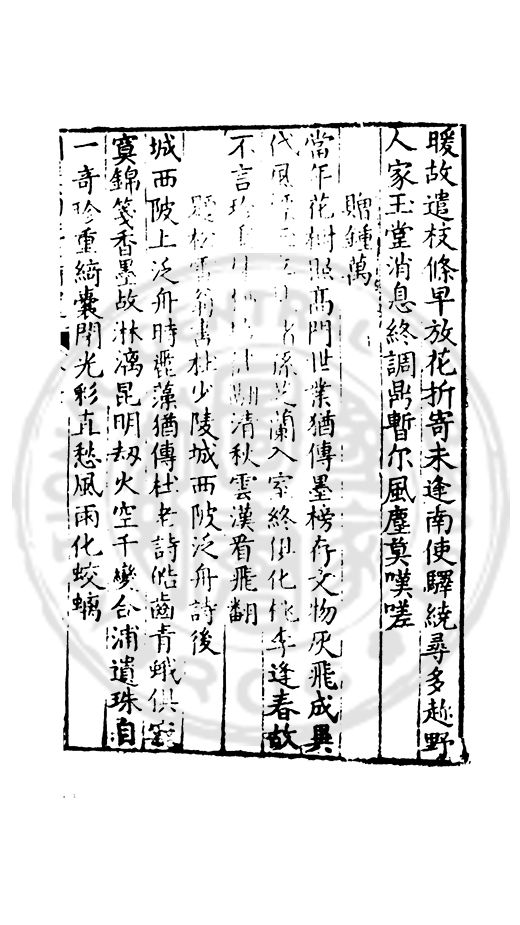 暖故遣枝條早放花折寄未逢南使驛繞尋多趂野
人家玉堂消息終調鼎暫尔風塵莫嘆嗟
贈鍾萬
當年花樹照高門世業猶傳墨榜存文物灰飛成異
代風孫芝蘭入室終俱化桃李逢春故
不言珍清秋雲漢看飛翻
題松雪翁書杜少陵城西陂泛舟詩後
城西陂上泛舟時麗藻猶傳杜老詩皓齒青蛾俱寂
寞錦箋香墨故淋漓昆明劫火空千變合浦遺珠自
一奇珍重綺囊閉光彩直愁風雨化蛟螭